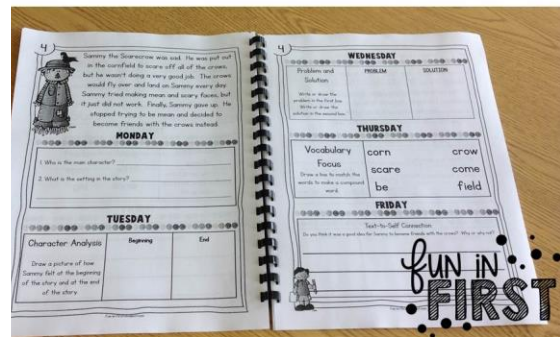 4
Sammy the Scarecrow was sad. He was put out
in the cornfield to scare off all of the crows,
but he wasn't doing a very good job. The crows
would fly over and land on Sammy every day.
Sammy tried making mean and scary faces, but
it just did not work. Finally, Sammy gave up. He
stopped trying to be mean and decided to
become friends with the crows instead.
MONDAY
1. Who is the main character?
2. What is the setting in the story?
TUESDAY
Character Analysis
Draw a picture of how
Sammy felt at the beginning
of the story and at the end
of the story.
Beginning
End
4
WEDNESDAY
Problem and
Solution
Write or draw the
problem in the first box.
Write or draw the
solution in the second box.
PROBLEM
SOLUTION
THURSDAY
Vocabulary
Focus
Draw a line to match the
words to make a compound
word.
corn crow
scare come
be field
FRIDAY
Text-to-Self Connection
Do you think it was a good idea for Sammy to become friends with the crows? Why or why not?
FUN IN
FIRST